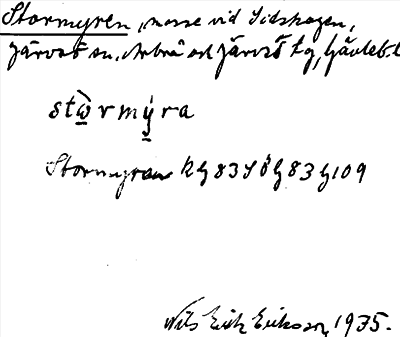 Stormyren, mosse vid Sidskogen,
Järvsö sn, Arbrå och Järvsö tg, Gävleb. l.
stὼ̱rmý̱ra
Stormyran
Nils Erik Eriksson, 1935.